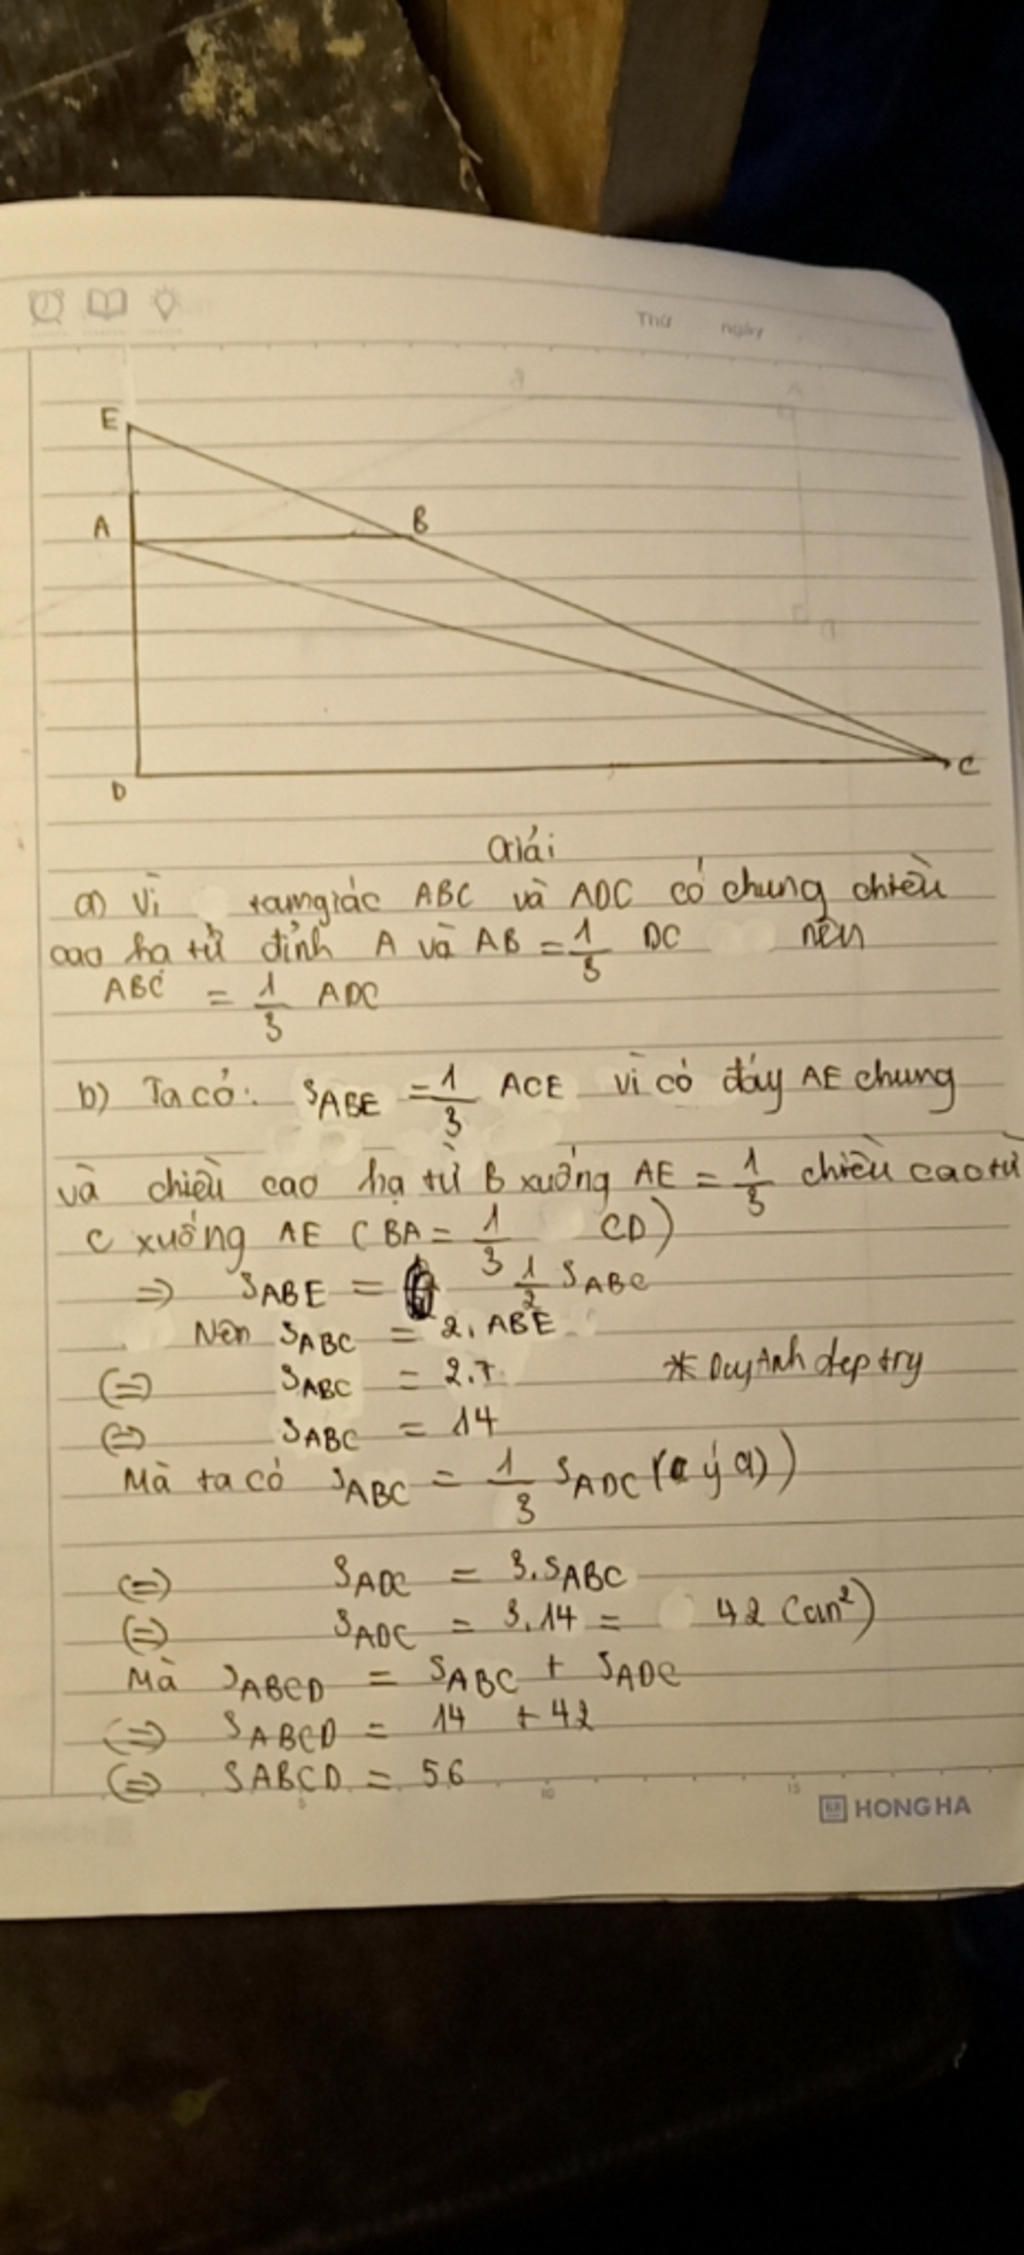 Thứ ngày
E
A
B
D
C
Giải
a) Vì tam giác ABC và ADC có chung chiều
cao hạ từ đỉnh A và AB = 1/3 DC nên
ABC = 1/3 ADC
b) Ta có: SABE = 1/3 ACE vì có đáy AE chung
và chiều cao hạ từ B xuống AE = 1/3 chiều cao từ
C xuống AE (BA = 1/3 CD)
=> SABE = 1/2 SABC
Nên SABC = 2. ABE
(=) SABC = 2.7
(=) SABC = 14
Mà ta có SABC = 1/3 SADC (ý a))
(=) SADC = 3.SABC
(=) SADC = 3.14 = 42 (cm²)
Mà SABCD = SABC + SADC
(=) SABCD = 14 + 42
(=) SABCD = 56
* Duy Anh dep try
5 10 15
HONG HA